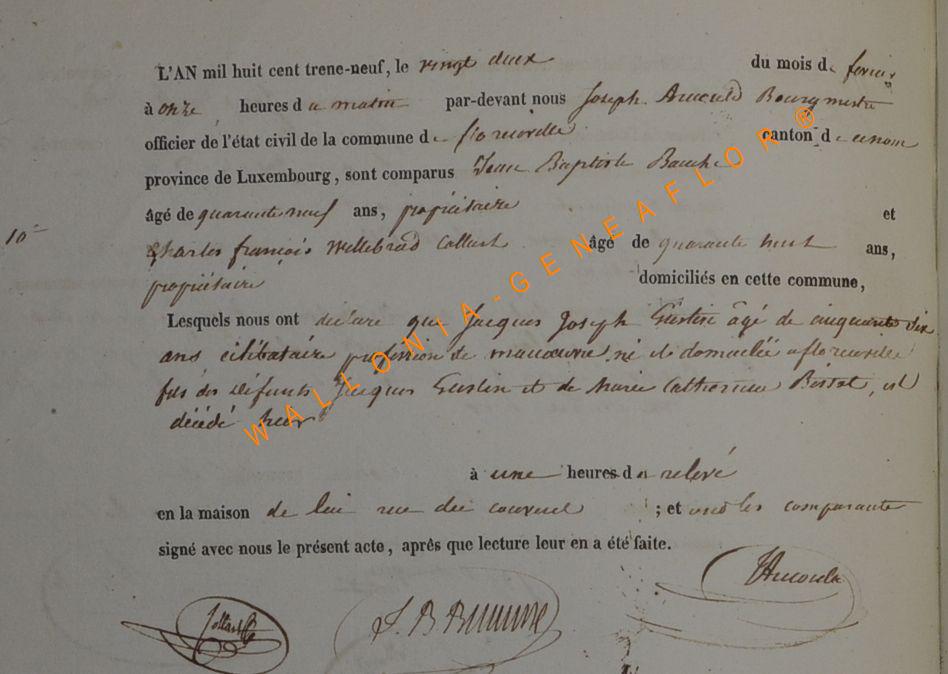 L'AN mil huit cent trene-neuf, le vingt deux du mois de fevrier
à onze heures du matin par-devant nous Joseph Bourgmestre
officier de l'état civil de la commune de florenville canton de
province de Luxembourg, sont comparus Jean Baptiste
âgé de quarante neuf ans, propriétaire et
10
Charles françois Willebrod Collart âgé de quarante huit ans,
propriétaire domiciliés en cette commune,
Lesquels nous ont déclaré que Jacques Joseph Gustin âgé de cinquante six
ans célibataire profession de manoeuvre né et domicilié a florenville
fils des défunts Jacques Gustin et de Marie Catherine est
décédé hier
à une heures de relevé
en la maison de lui rue du ; et ont les comparants
signé avec nous le présent acte, après que lecture leur en a été faite.
Collart
J. B.
WALLONIA-GENEAFLOR ®